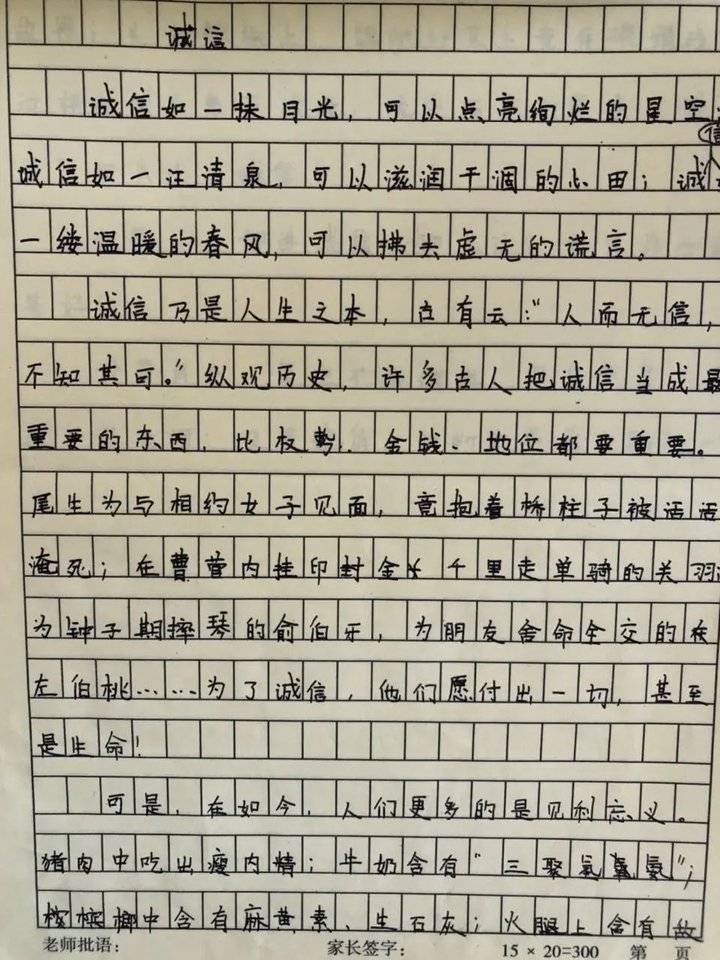 诚信
诚信如一抹月光，可以点亮绚烂的星空；
信
诚信如一汪清泉，可以滋润干涸的心田；诚
一缕温暖的春风，可以拂去虚无的谎言。
诚信乃是人生之本，古有云：“人而无信，
不知其可。”纵观历史，许多古人把诚信当成最
重要的东西，比权势、金钱、地位都要重要。
尾生为与相约女子见面，竟抱着桥柱子被活活
淹死；在曹营内挂印封金 千里走单骑的关羽
为钟子期摔琴的俞伯牙，为朋友舍命全交的
左伯桃……为了诚信，他们愿付出一切，甚至
是生命！
可是，在如今，人们更多的是见利忘义。
猪肉中吃出瘦肉精；牛奶含有“三聚氰氨”；
槟榔中含有麻黄素、生石灰；火腿上含有敌
老师批语： 家长签字： 15 × 20=300 第 页